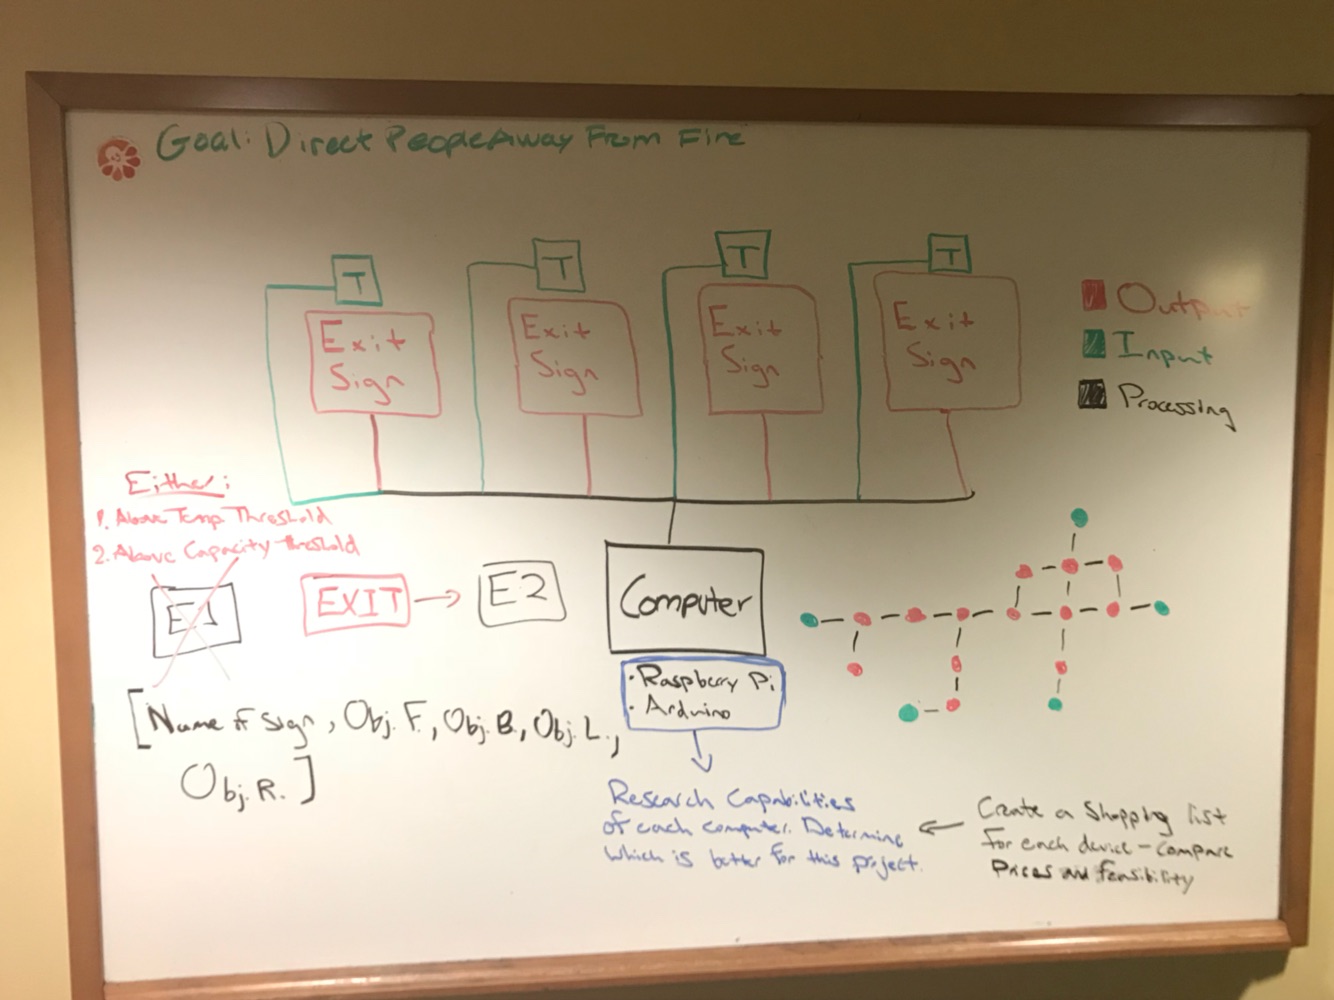 Goal: Direct People Away From Fire
T
T
T
T
Exit
Sign
Exit
Sign
Exit
Sign
Exit
Sign
Output
Input
Processing
Either:
1. Above Temp. Threshold
2. Above Capacity Threshold
E1
EXIT
E2
Computer
· Raspberry Pi
· Arduino
[Name of Sign, Obj. F., Obj. B., Obj. L.,
Obj. R.]
Research Capabilities
of each computer. Determine
which is better for this project.
Create a Shopping list
for each device - compare
Prices and feasibility